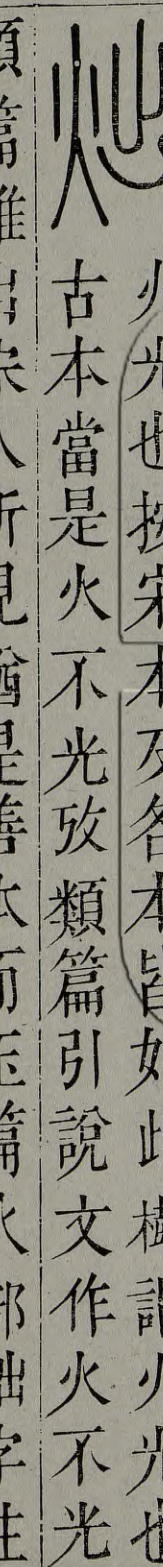 炪
火光也按宋本及各本皆如此樾謂火光也
古本當是火不光攷類篇引說文作火不光
類篇雖出宋人所見猶是善本而玉篇火部炪字注